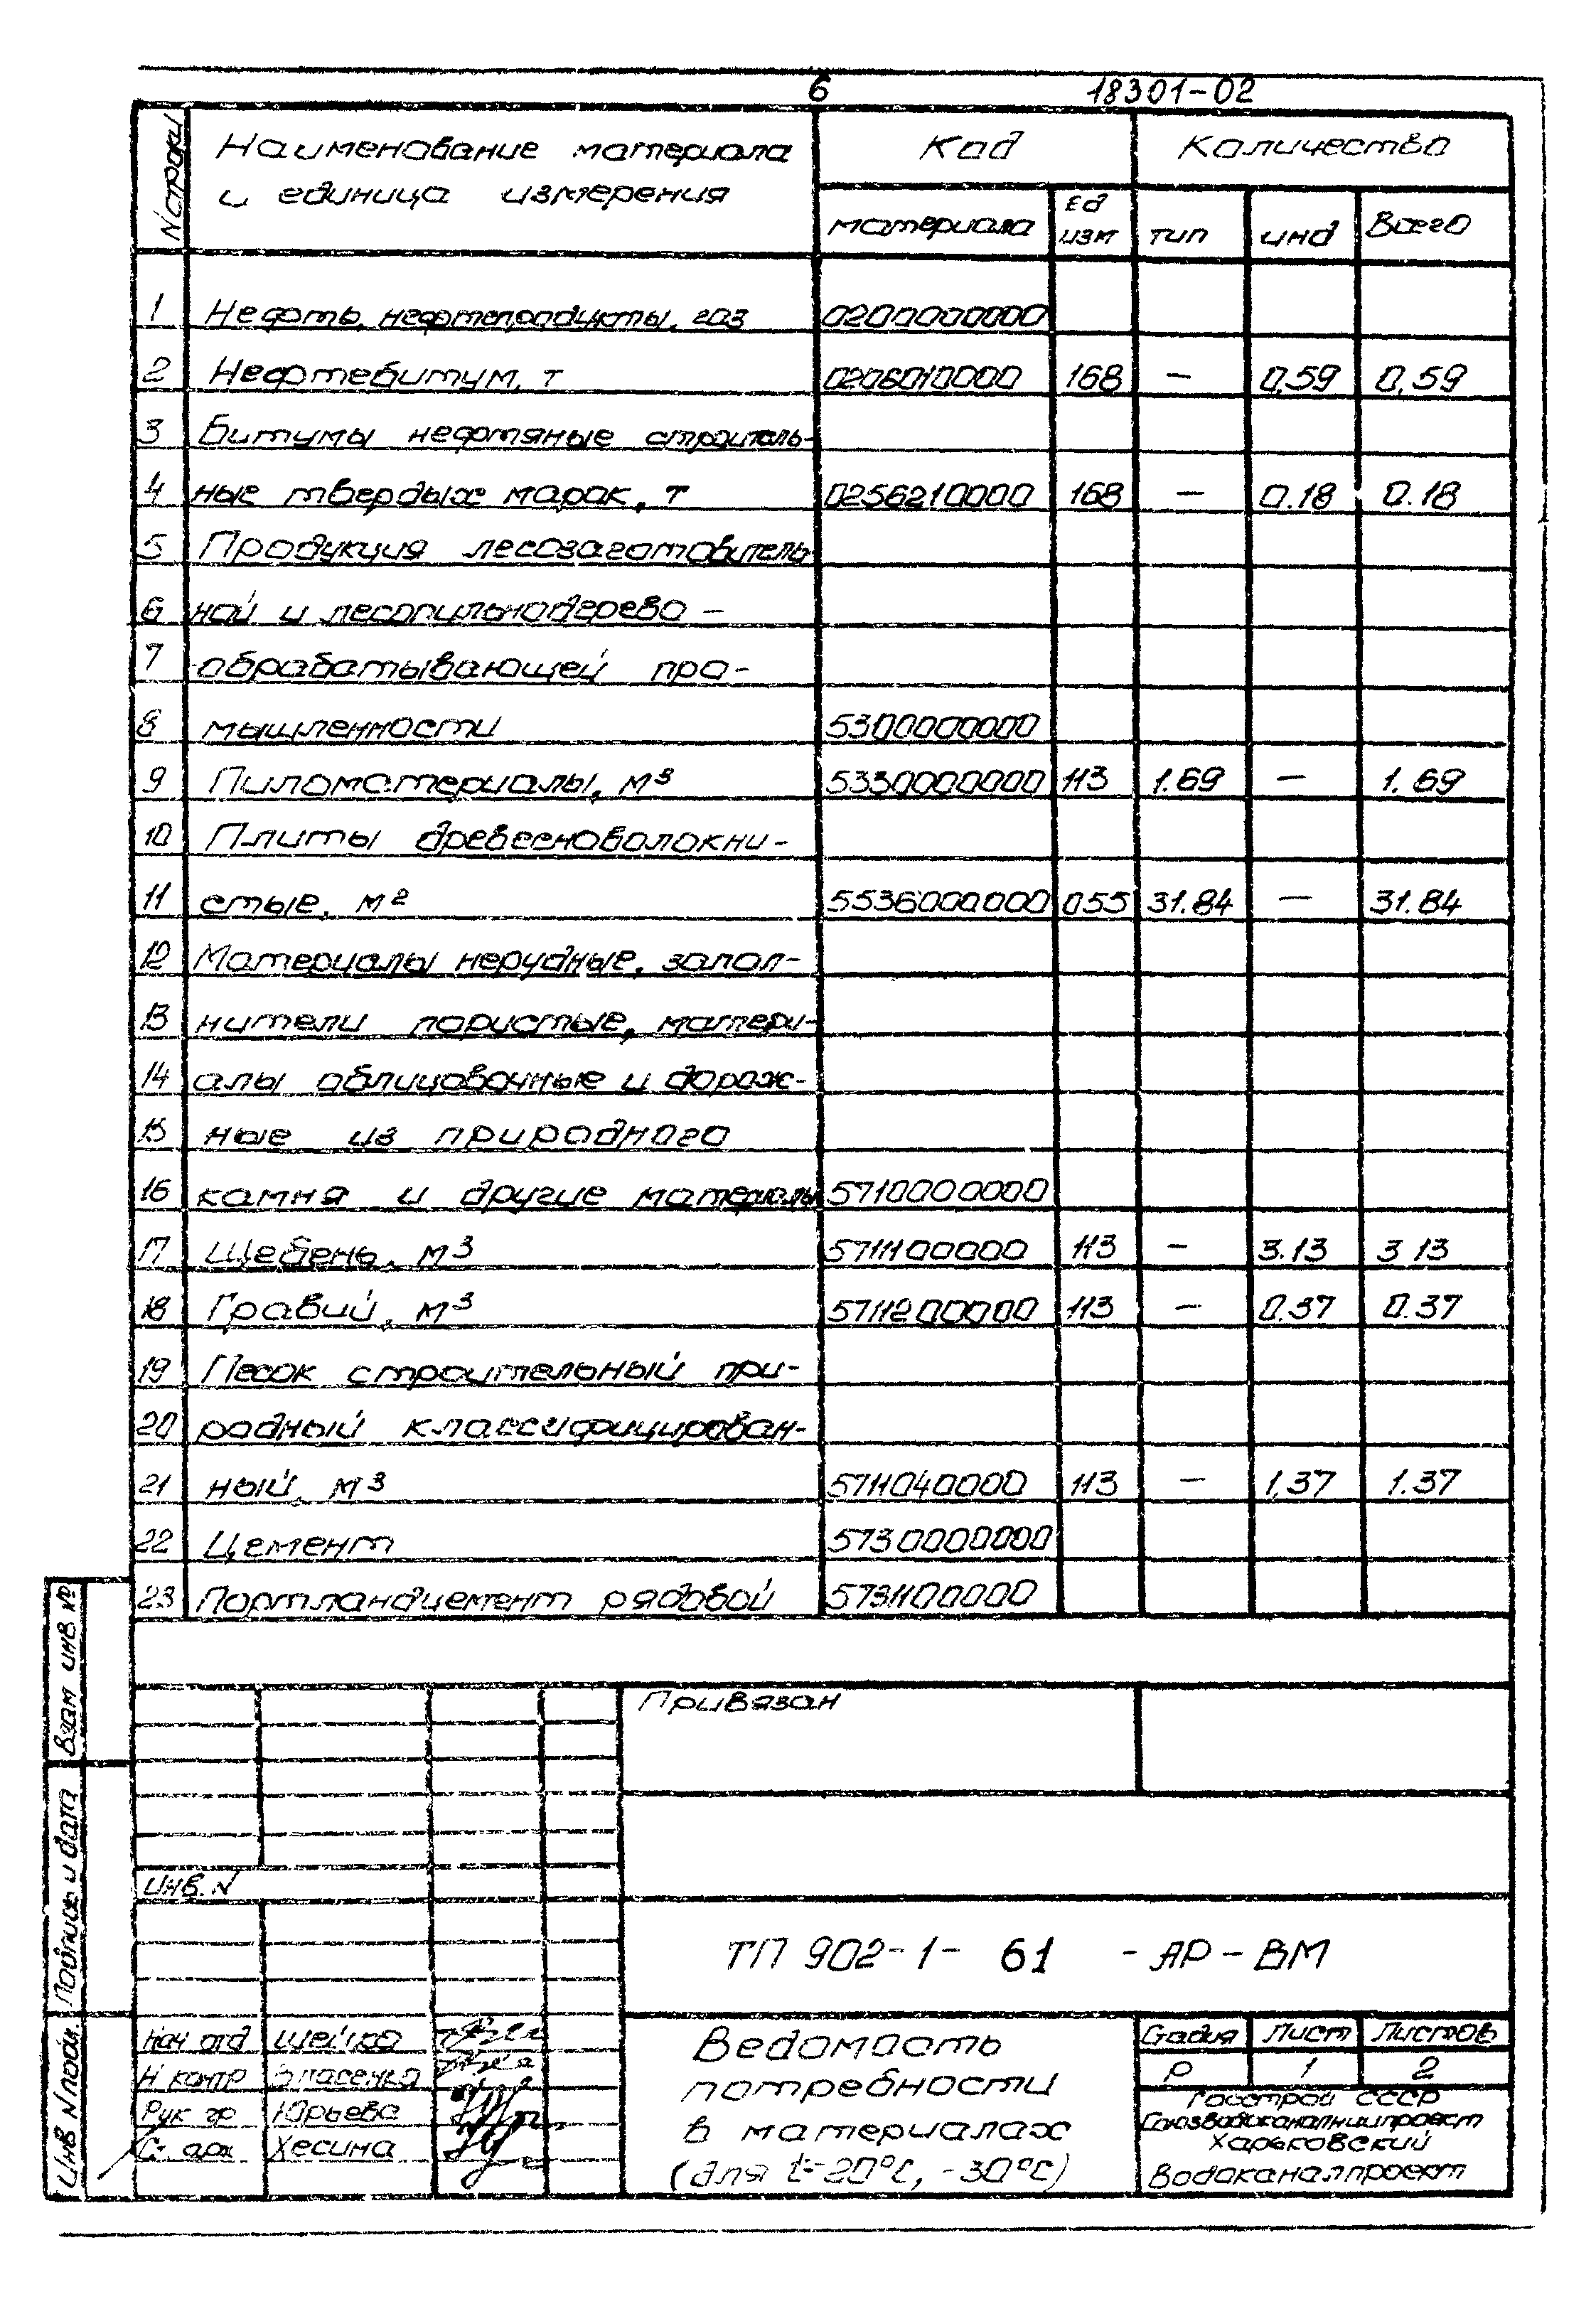 6 18301-02
N строки Наименование материала Код Количество
и единица измерения
материала Ед изм тип инд Всего
1 Нефть, нефтепродукты, газ 0200000000
2 Нефтебитум, т 0206010000 168 — 0,59 0,59
3 Битумы нефтяные строитель-
4 ные твердых марок, т 0256210000 168 — 0.18 0.18
5 Продукция лесозаготовитель-
6 ной и лесопильнодерево-
7 обрабатывающей про-
8 мышленности 5300000000
9 Пиломатериалы, м3 5330000000 113 1.69 — 1.69
10 Плиты древесноволокни-
11 стые, м2 5536000000 055 31.84 — 31.84
12 Материалы нерудные, запол-
13 нители пористые, матери-
14 алы облицовочные и дорож-
15 ные из природного
16 камня и другие материалы 5710000000
17 Щебень, м3 5711100000 113 — 3.13 3 13
18 Гравий, м3 5711200000 113 — 0.37 0.37
19 Песок строительный при-
20 родный классифицирован-
21 ный, м3 5711040000 113 — 1,37 1.37
22 Цемент 5730000000
23 Портландцемент рядовой 5731100000
Взам инв №
Подпись и дата
Инв N подл.
Привязан
Инв. N
ТП 902-1- 61 - АР - ВМ
Нач отд Шейко
Н контр
Рук гр Юрьева
Ст. арх Хесина
Ведомость
потребности
в материалах
(для t=-20°С, -30°С)
Стадия Лист Листов
Р 1 2
Госстрой СССР
Союзводоканалниипроект
Харьковский
Водоканалпроект